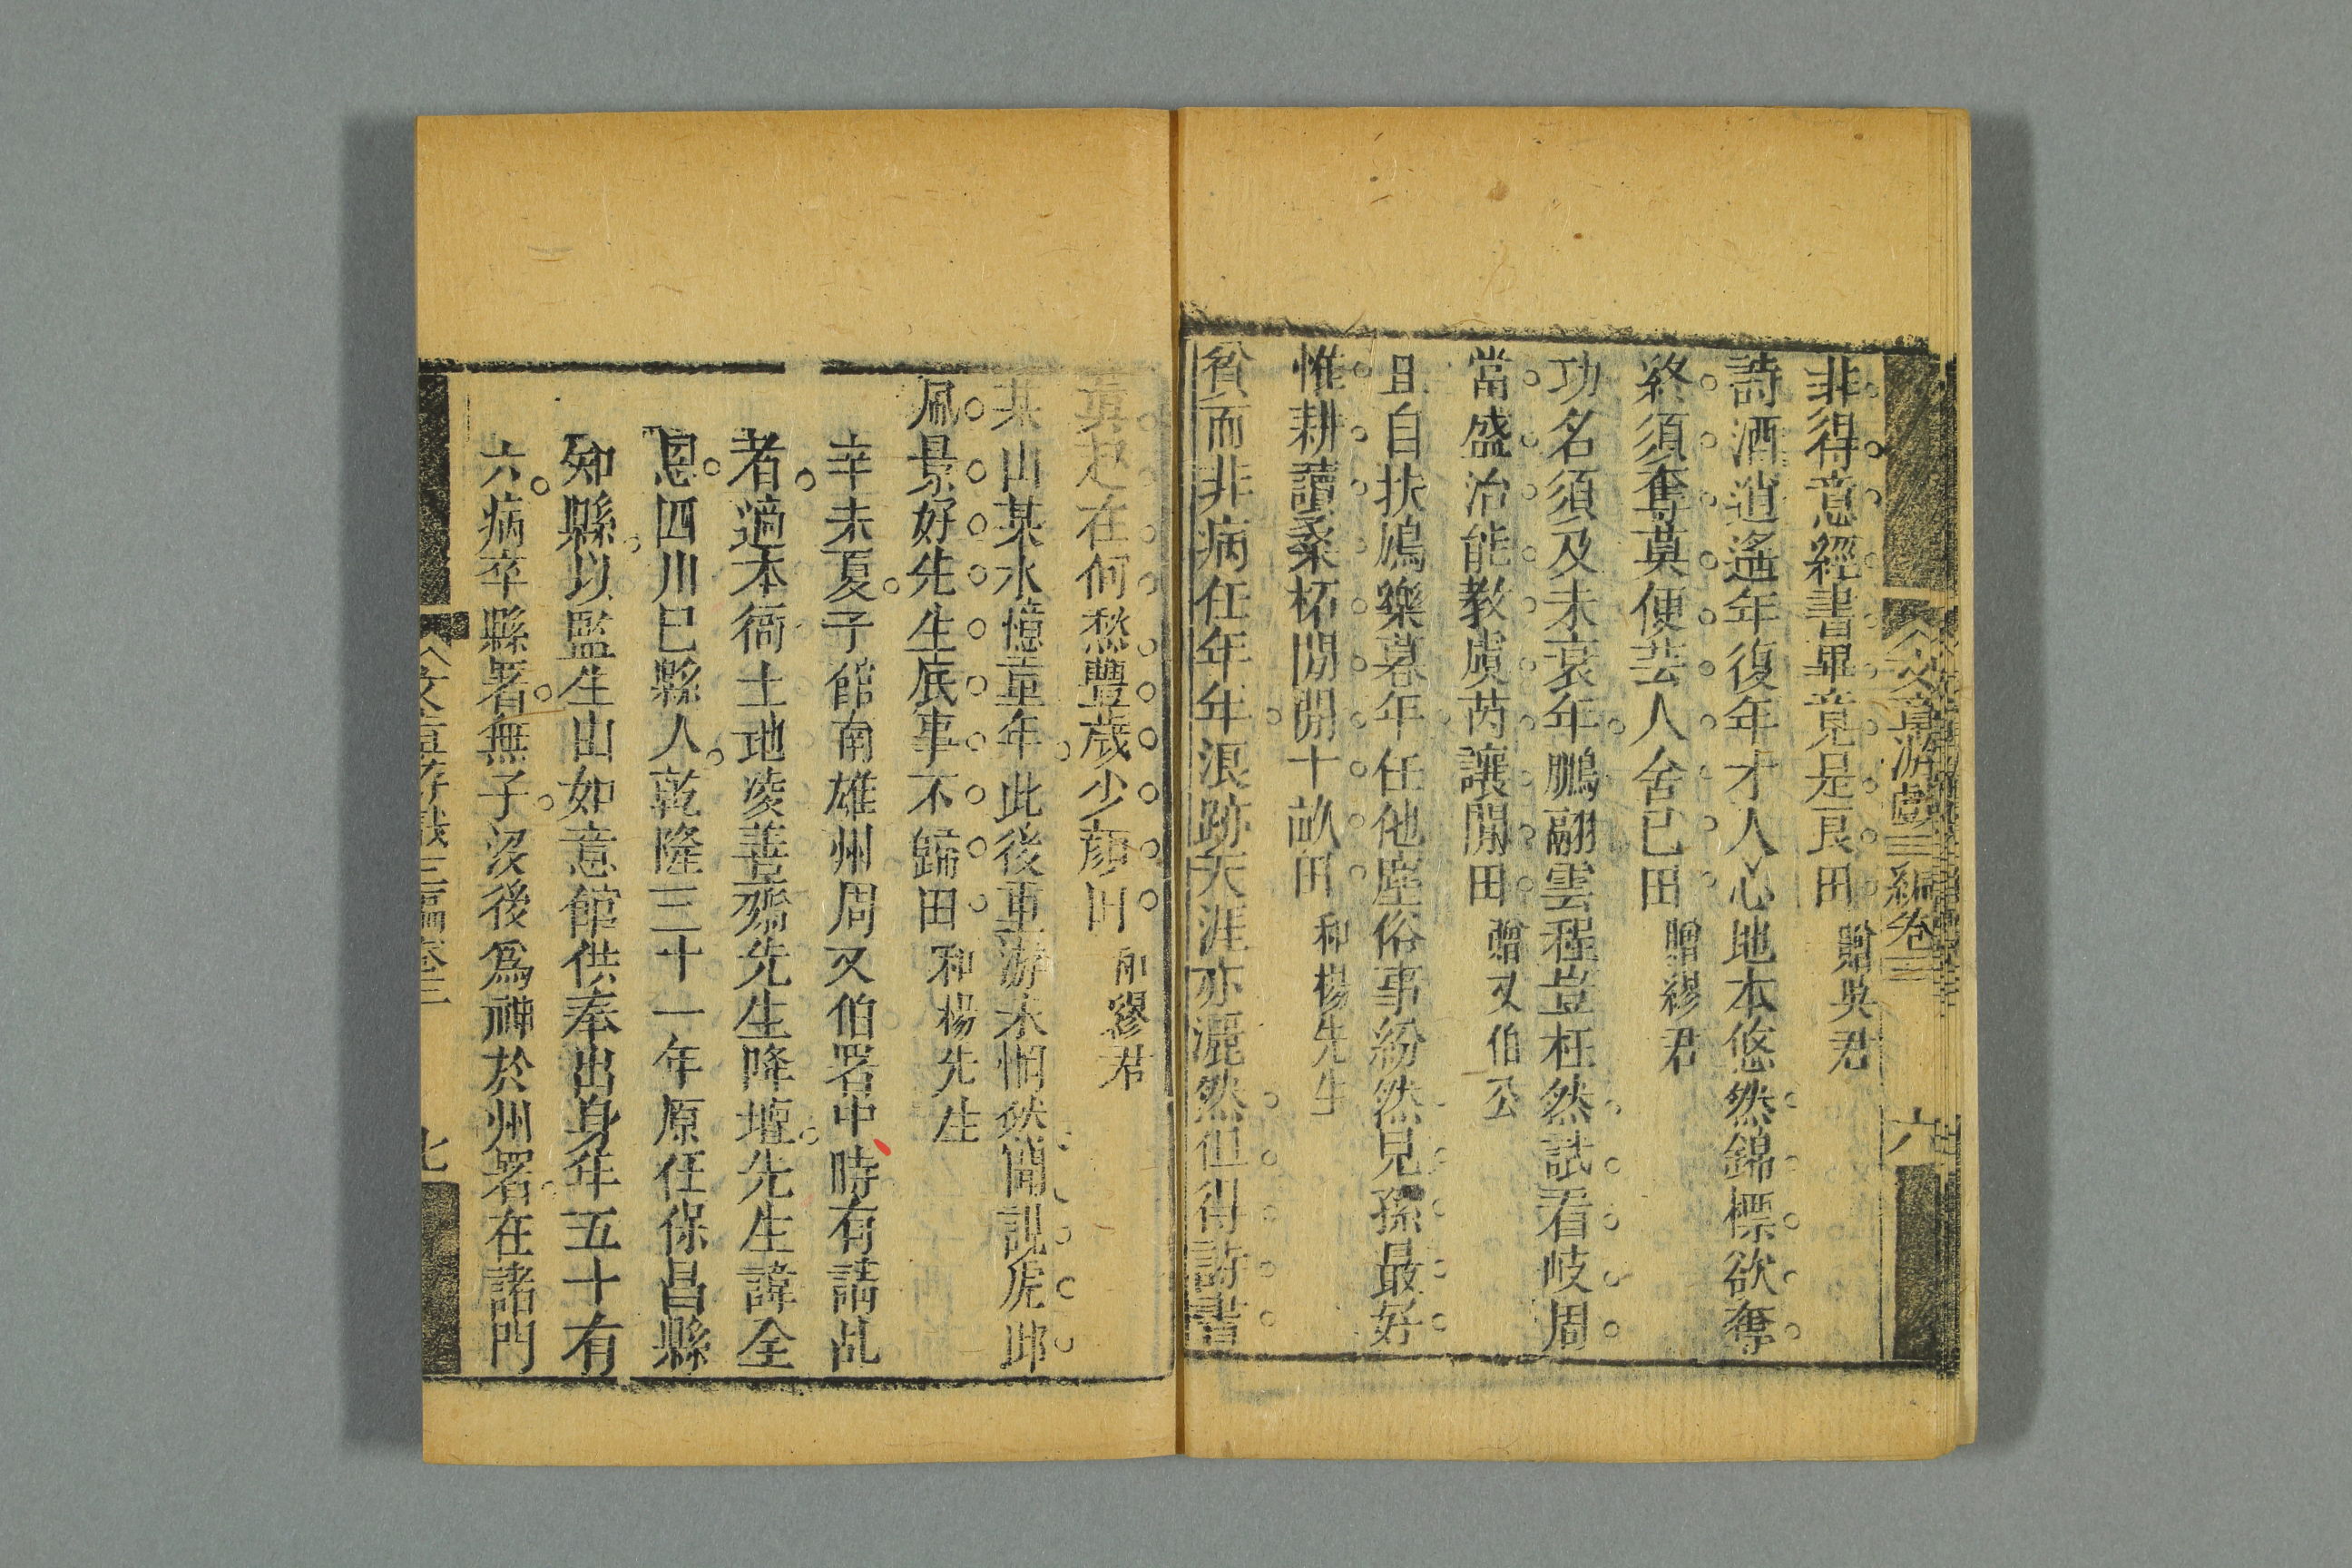 文章游戲三編卷三
六
非得意經書畢竟是良田贈吳君
詩酒逍遙年復年才人心地本悠然錦標欲奪
終須奪莫便芸人舍己田贈繆君
功名須及未衰年鵬翮雲程豈枉然試看岐周
當盛治能教虞芮讓閒田贈又伯公
且自扶鳩樂暮年任他塵俗事紛然見孫最好
惟耕讀桑柘閒閒十畝田和楊先生
貧而非病任年年浪跡天涯亦灑然但得詩書
眞起在何愁豐歲少顏田和繆君
某山某水憶童年此後重游未惘然聞說虎邱
風景好先生底事不歸田和楊先生
辛未夏子館南雄州周又伯署中時有請乩
者適本衙土地凌善齋先生降壇先生諱全
恩四川巴縣人乾隆三十一年原任保昌縣
知縣以監生山如意館供奉出身年五十有
六病卒縣署無子沒後爲神於州署在諸門
文章游戲三編卷三
七